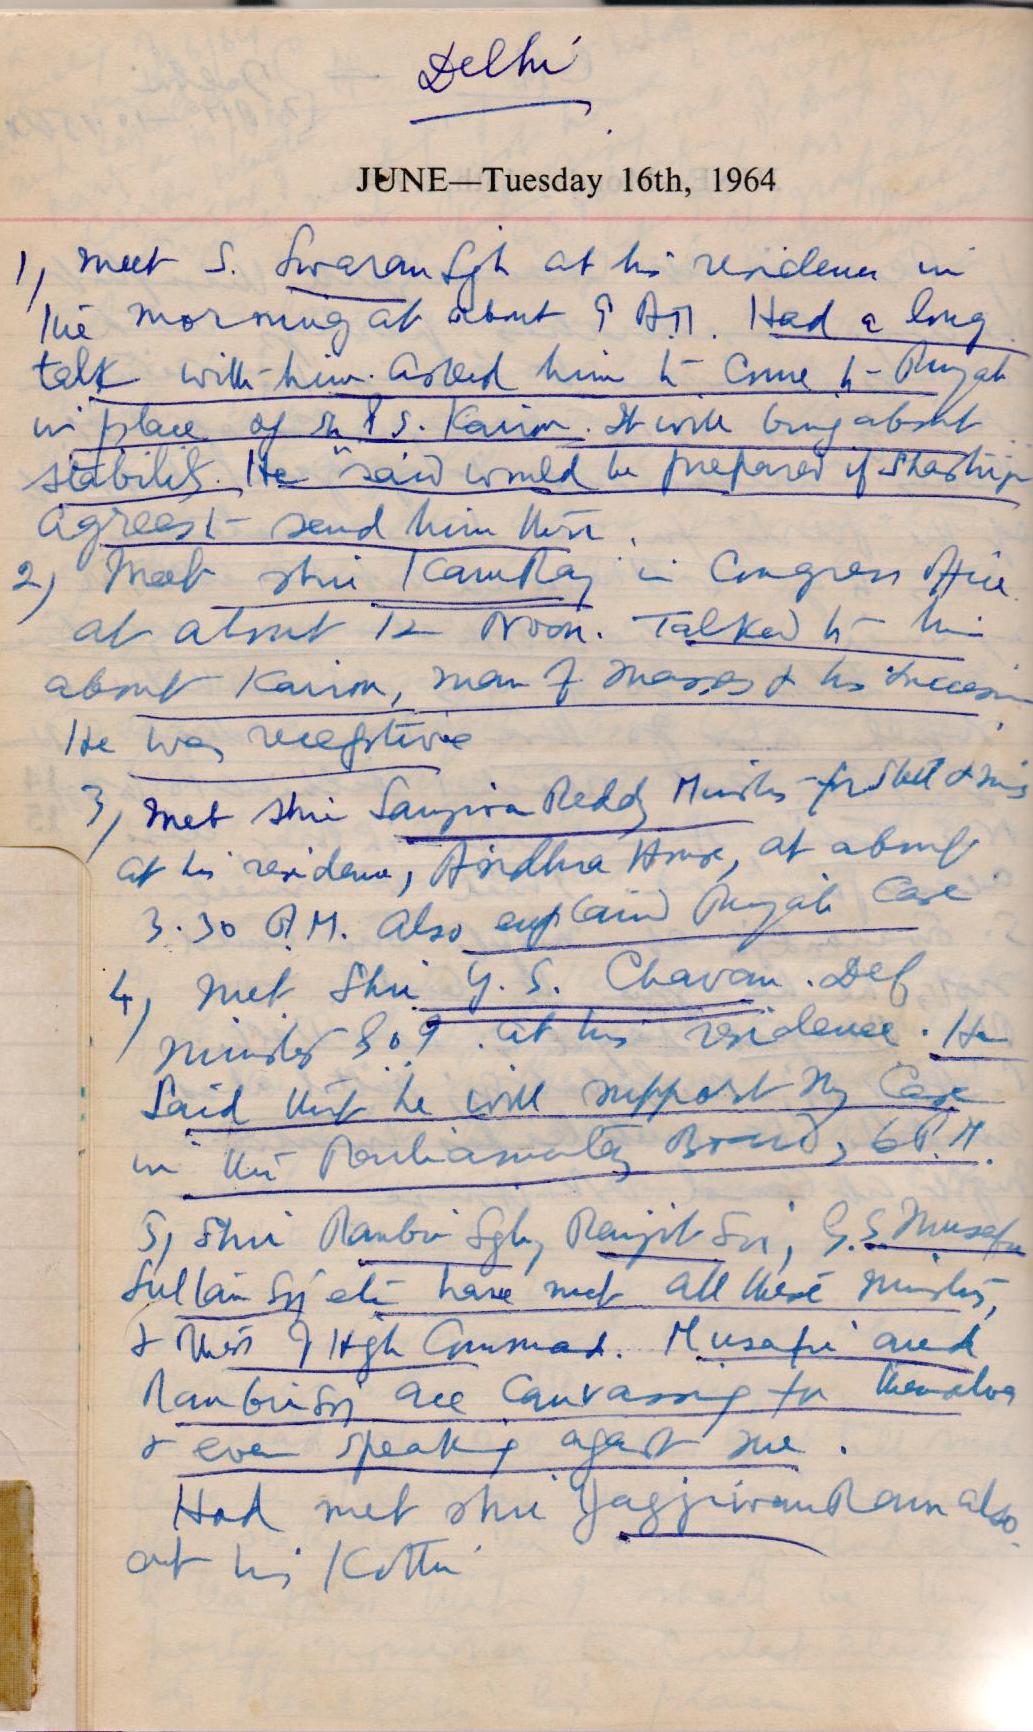 Delhi
JUNE—Tuesday 16th, 1964
1, Meet S. Swaran Sgh at his residence in
the morning at about 9 A.M. Had a long
talk with him. asked him to come to Punjab
in place of S. P.S. Kairon. It will bring about
stability. He said would be prepared if Shastriji
agrees to send him there.
2, Meet Shri KamRaj in Congress Office
at about 12 Noon. Talked to him
about Kairon, man of masses & his succession
He was receptive
3, Met Shri Sanjiva Reddy Minister for Steel & Mines
at his residence, Andhra House, at about
3.30 P.M. Also explained Punjab Case
4, Met Shri Y. S. Chavan. Def
Minister at his residence. He
Said that he will support my Case
in the Parliamentary Board, 6 P.M.
5, Shri Ranbir Sgh, Ranjit Sgh, G.S. Musafir
Sultan Sgh etc have met all these Ministers,
& those of High Command. Musafir and
Ranbir Sgh are canvassing for themselves
& even speaking against me.
Had met Shri Jagjiwan Ram also
at his Kothi